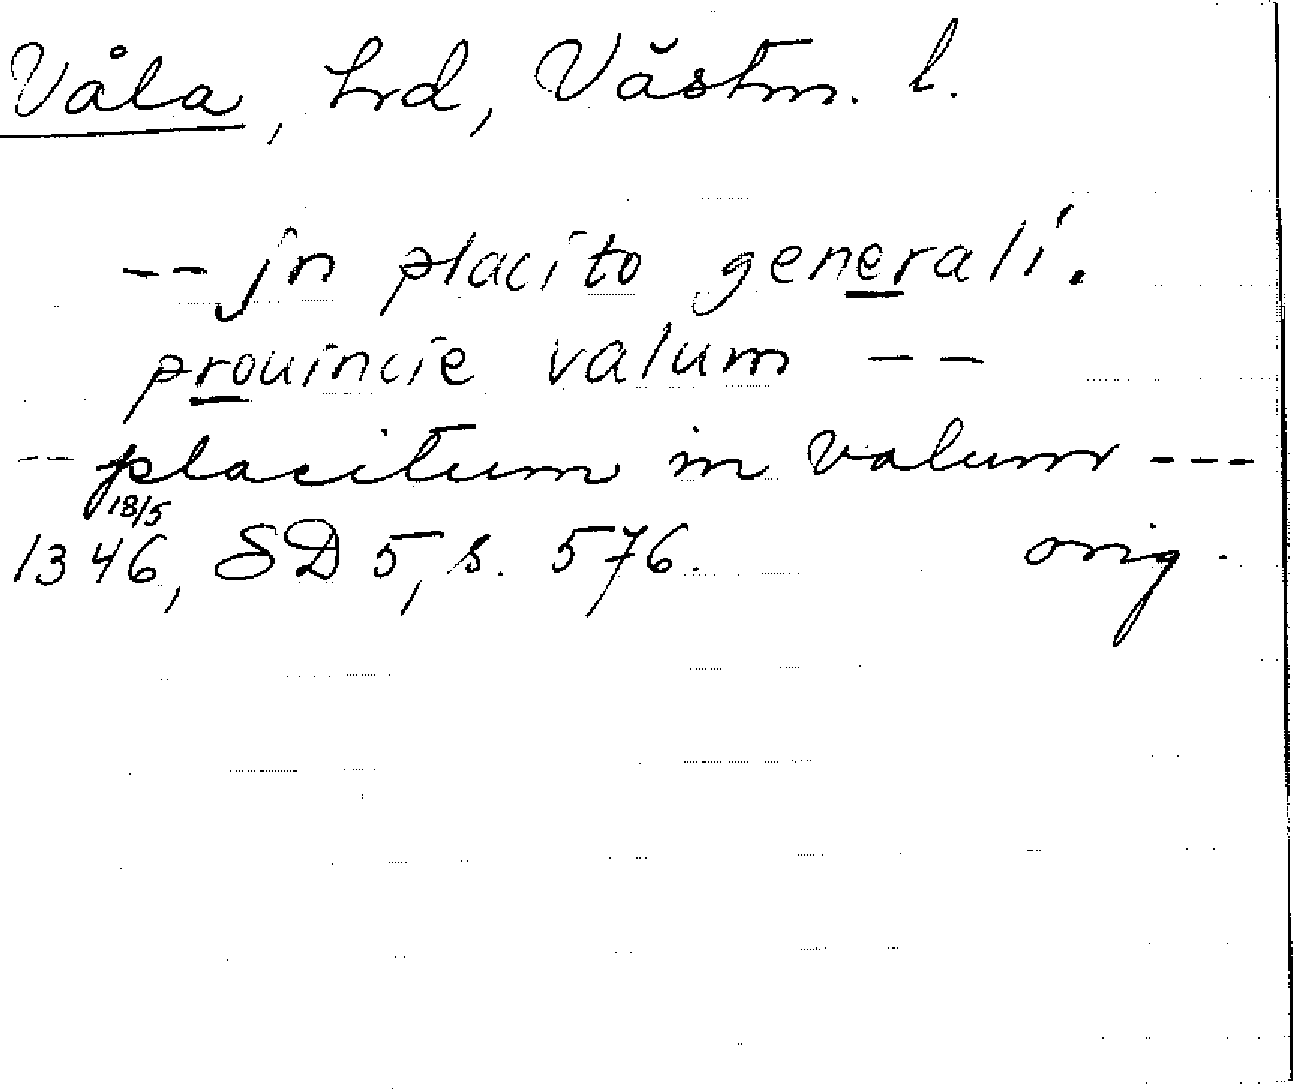 Våla, hrd, Västm. l.
-- jn placito generali.
prouincie valum --
-- placitum in valum ---
18/5
1346, SD 5, s. 576. orig.